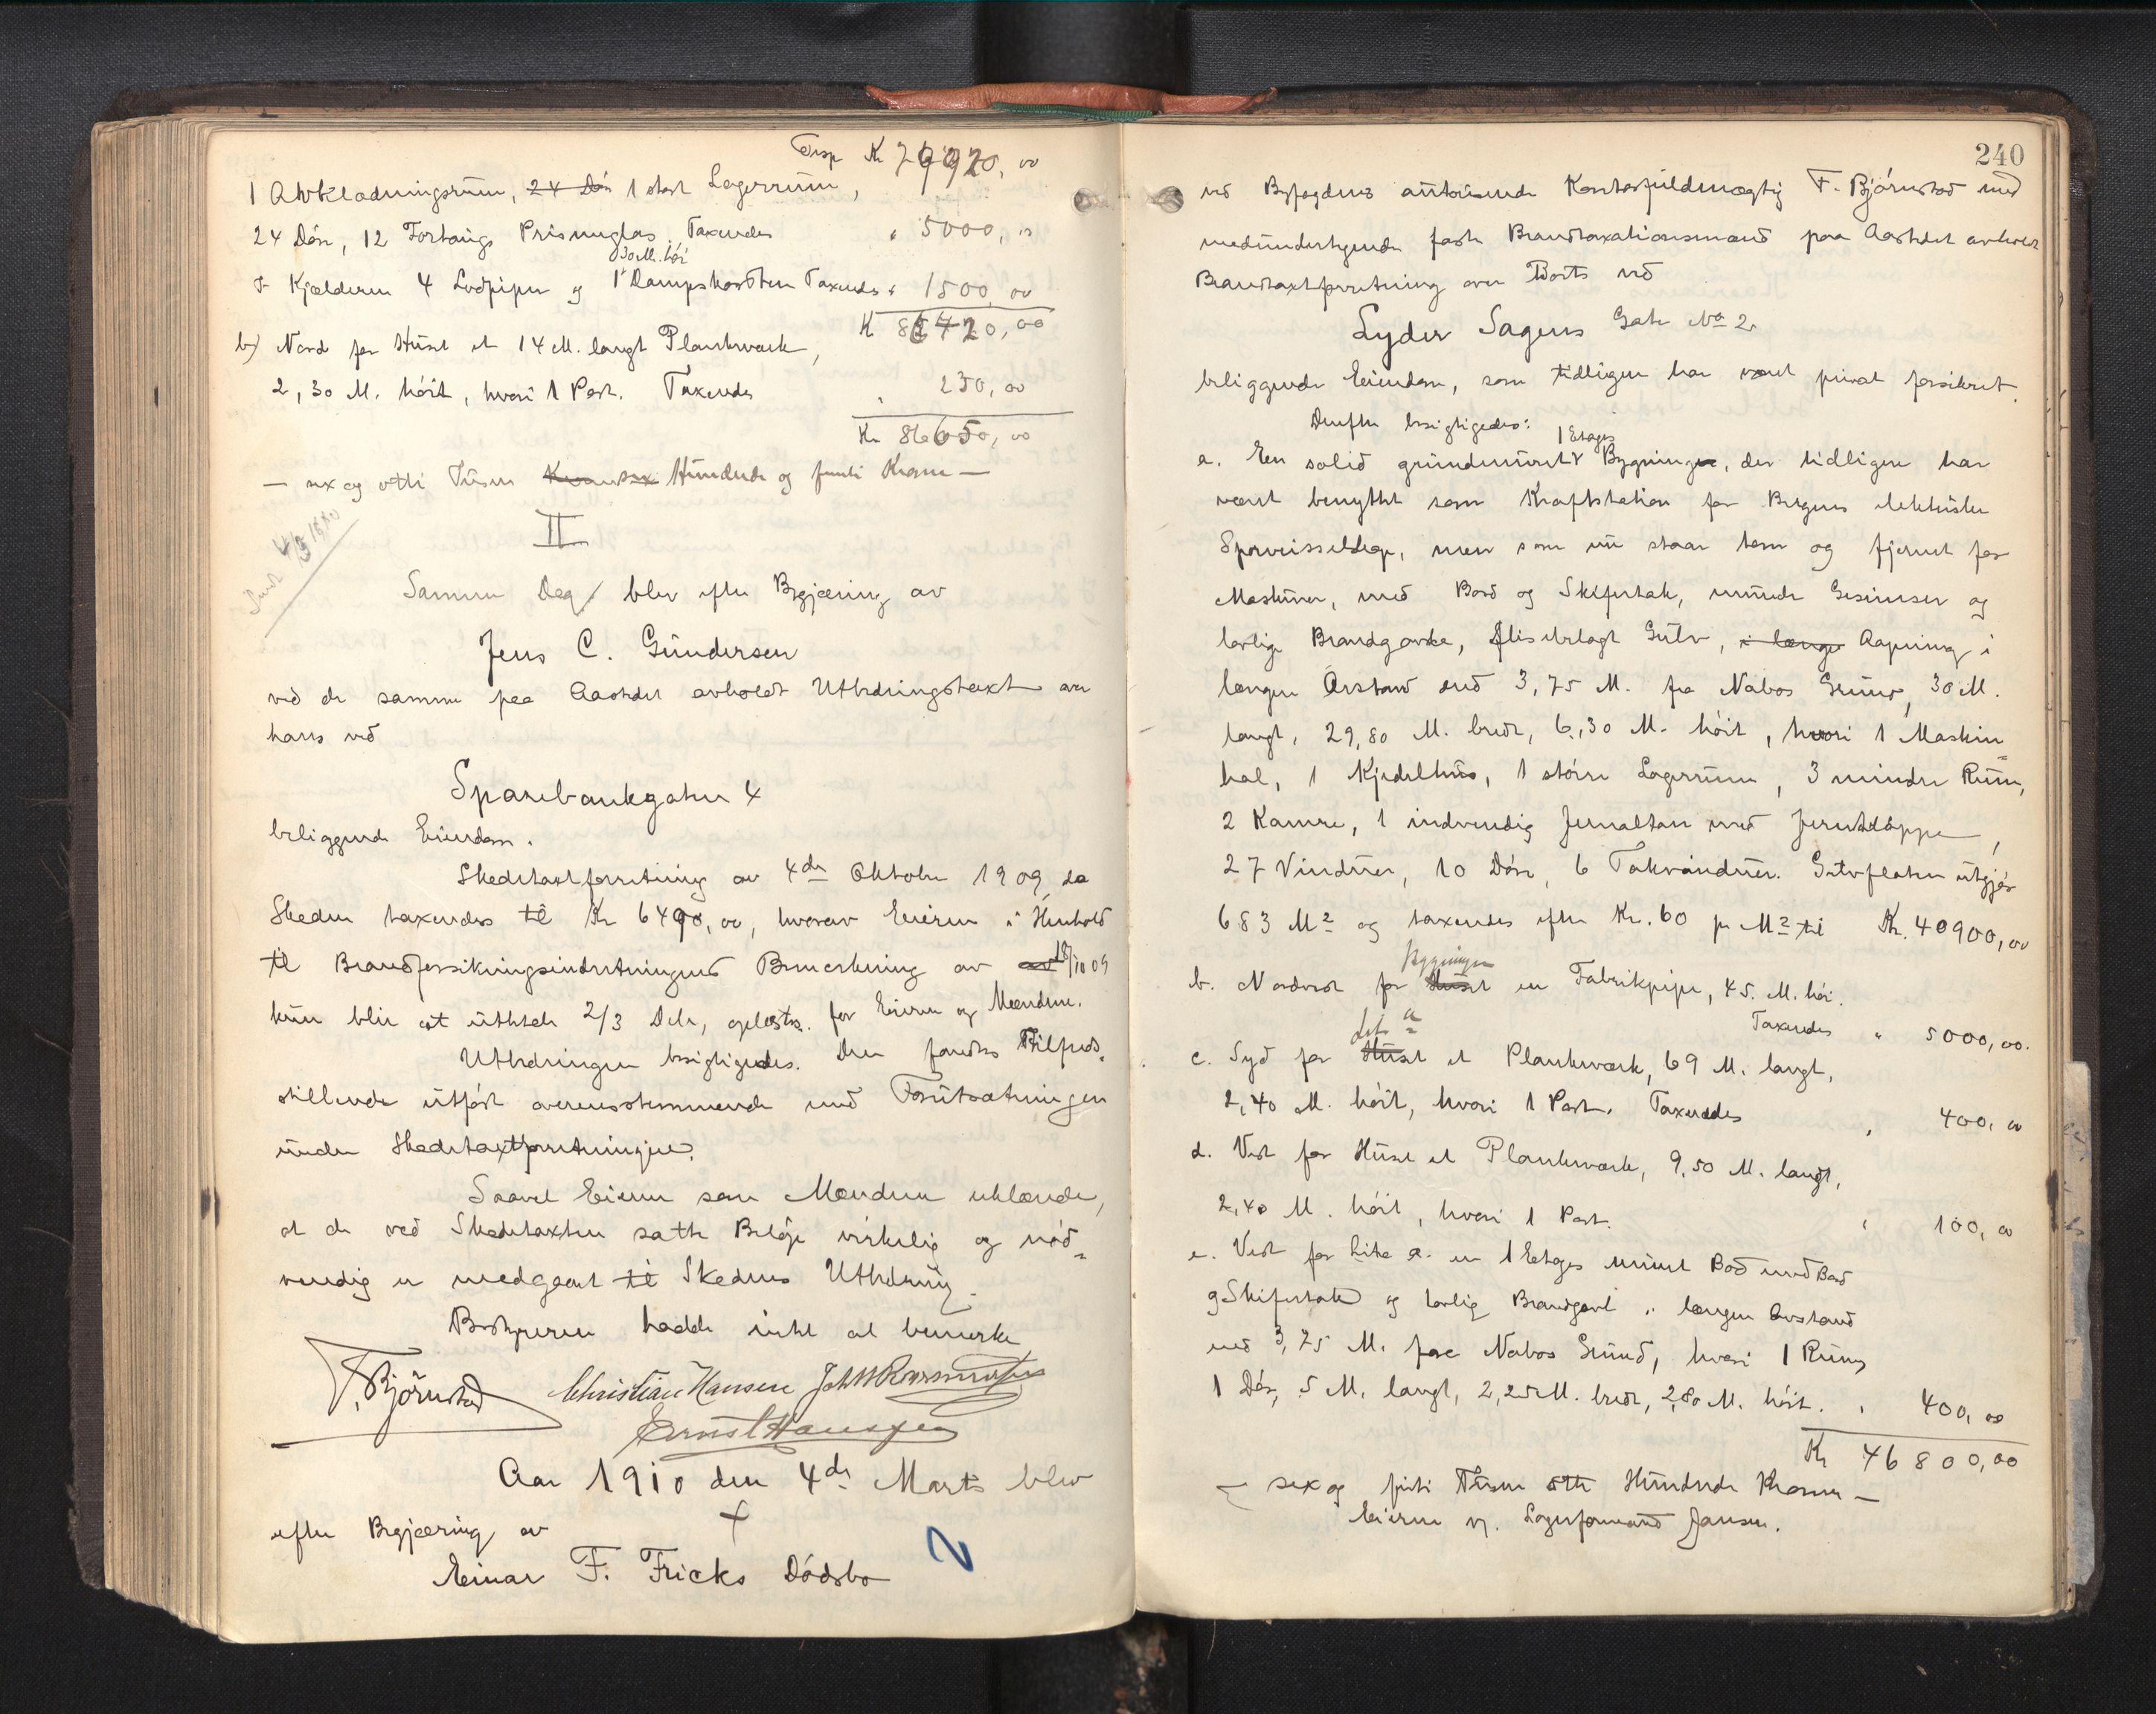 Transp Kr 79920,00
1 Avklædningsrum, 24 Dör 1 stort Lagerrum,
24 Döre, 12 Fortaugs Prismeglas. Taxeredes " 5000, "
I Kjælderen 4 Lodpiper og 1 30 M. höi Dampskorsten Taxeredes " 1500,00
Kr 86420,00
b) Nord for Huset et 14 M. langt Plankeværk,
2,30 M. höit, hvori 1 Port. Taxeredes " 230,00
Kr 86650,00
— sex og otti Tusen sex Hundrede og femti Kroner —
II
Samme Dag blev efter Begjæring av
Jens C. Gundersen
ved de samme paa Aastedet avholdt Utbedringstakst over
hans ved
Sparebankgaten 4
beliggende Eiendom.
Skadetaxtforretning av 4de Oktober 1909, da
Skaden taxeredes til Kr 6490,00, hvorav Eieren i Henhold
til Brandforsikringsindretningens Bemerkning av 18/10 09
kun blir at utbetale 2/3 Dele, oplæstes for Eieren og Mændene.
Utbedringen besigtigedes. Den fandtes tilfreds-
stillende utfört overensstemmende med Forutsætningen
under Skadetaxtforretningen.
Saavel Eieren som Mændene erklærede,
at de ved Skadetaxten satte Belöp virkelig og nöd-
vendig er medgaat til Skadens Utbedring.
Bestyreren hadde intet at bemerke
F. Björnstad Christian Hansen Joh W Rasmussen
Ernst Hansen
Aar 1910 den 4de Marts blev
efter Begjæring av
Einar F. Fricks Dödsbo
2
240
ved Byfogdens autoriserede Kontorfuldmægtig F. Björnstad med
medundertegnede faste Brandtaxationsmænd paa Aastedet avholdt
Brandtaxtforretning over Boets ved
Lyder Sagens Gate No 2
beliggende Eiendom, som tidligere har været privat forsikret.
Derefter besigtigedes:
a. En solid grundmuret 1 Etages Bygning, der tidligere har
været benyttet som Kraftstation for Bergens elektriske
Sporveisselskap, men som nu staar tom og fjernet for
Maskiner, med Bord og Skifertak, murede Gesimser og
lovlige Brandgavle, flisebelagt Gulv, Aapning i
længere Avstand end 3,75 M. fra Nabos Grund, 30 M.
langt, 29,80 M. bredt, 6,30 M. höit, hvori 1 Maskin-
hal, 1 Kjedelhus, 1 större Lagerrum, 3 mindre Rum,
2 Kamre, 1 indvendig Jernaltan med Jerntrappe,
27 Vinduer, 10 Döre, 6 Takvinduer. Gulvflaten utgjör
683 M2 og taxeredes efter Kr. 60 pr M2 til Kr. 40900,00
b. Nordvest for Bygningen en Fabrikpipe, 45 M. höi.
Taxeredes " 5000,00.
c. Syd for Litr a et Plankeværk, 69 M. langt,
2,40 M. höit, hvori 1 Port. Taxeredes " 400,00
d. Vest for Huset et Plankeværk, 9,50 M. langt,
2,40 M. höit, hvori 1 Port. " 100,00
e. Vest for Litra a. en 1 Etages muret Bod med Bord
og Skifertak og lovlig Brandgavl i længere Avstand
end 3,75 M. fra Nabos Grund, hvori 1 Rum,
1 Dör, 5 M. langt, 2,25 M. bredt, 2,80 M. höit. " 400,00
Kr 46800,00
— sex og firti Tusen otte Hundrede Kroner —
Eieren v. Lagerformand Jansen.